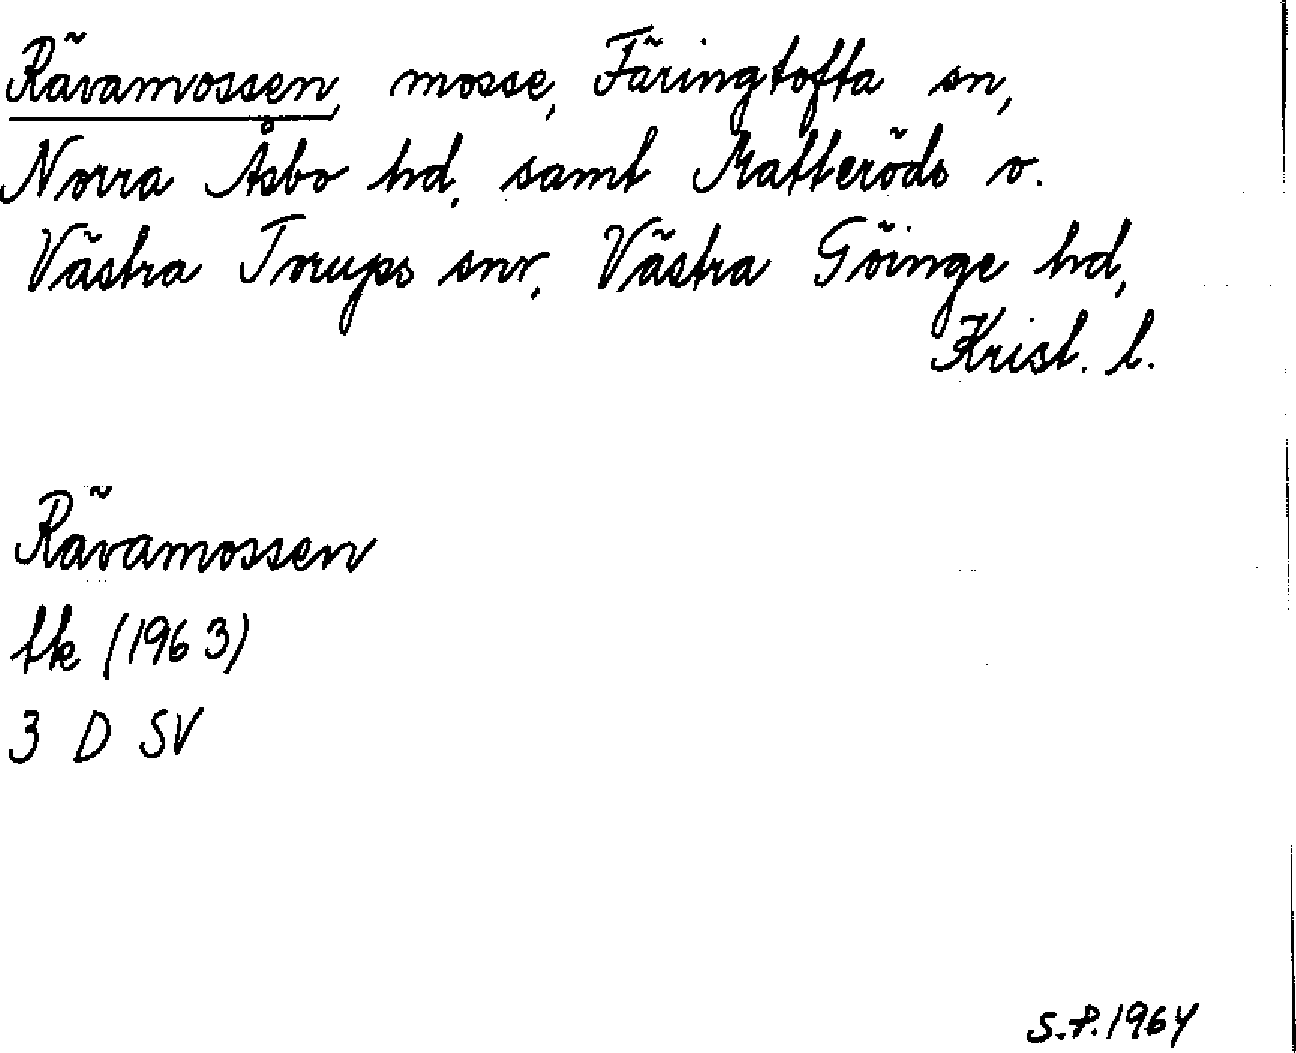 Rävamossen, mosse, Färingtofta sn,
Norra Åsbo hd, samt Matteröds o.
Västra Torups snr, Västra Göinge hd,
Krist. l.
Rävamossen
tk (1963)
3 D SV
S.P. 1964